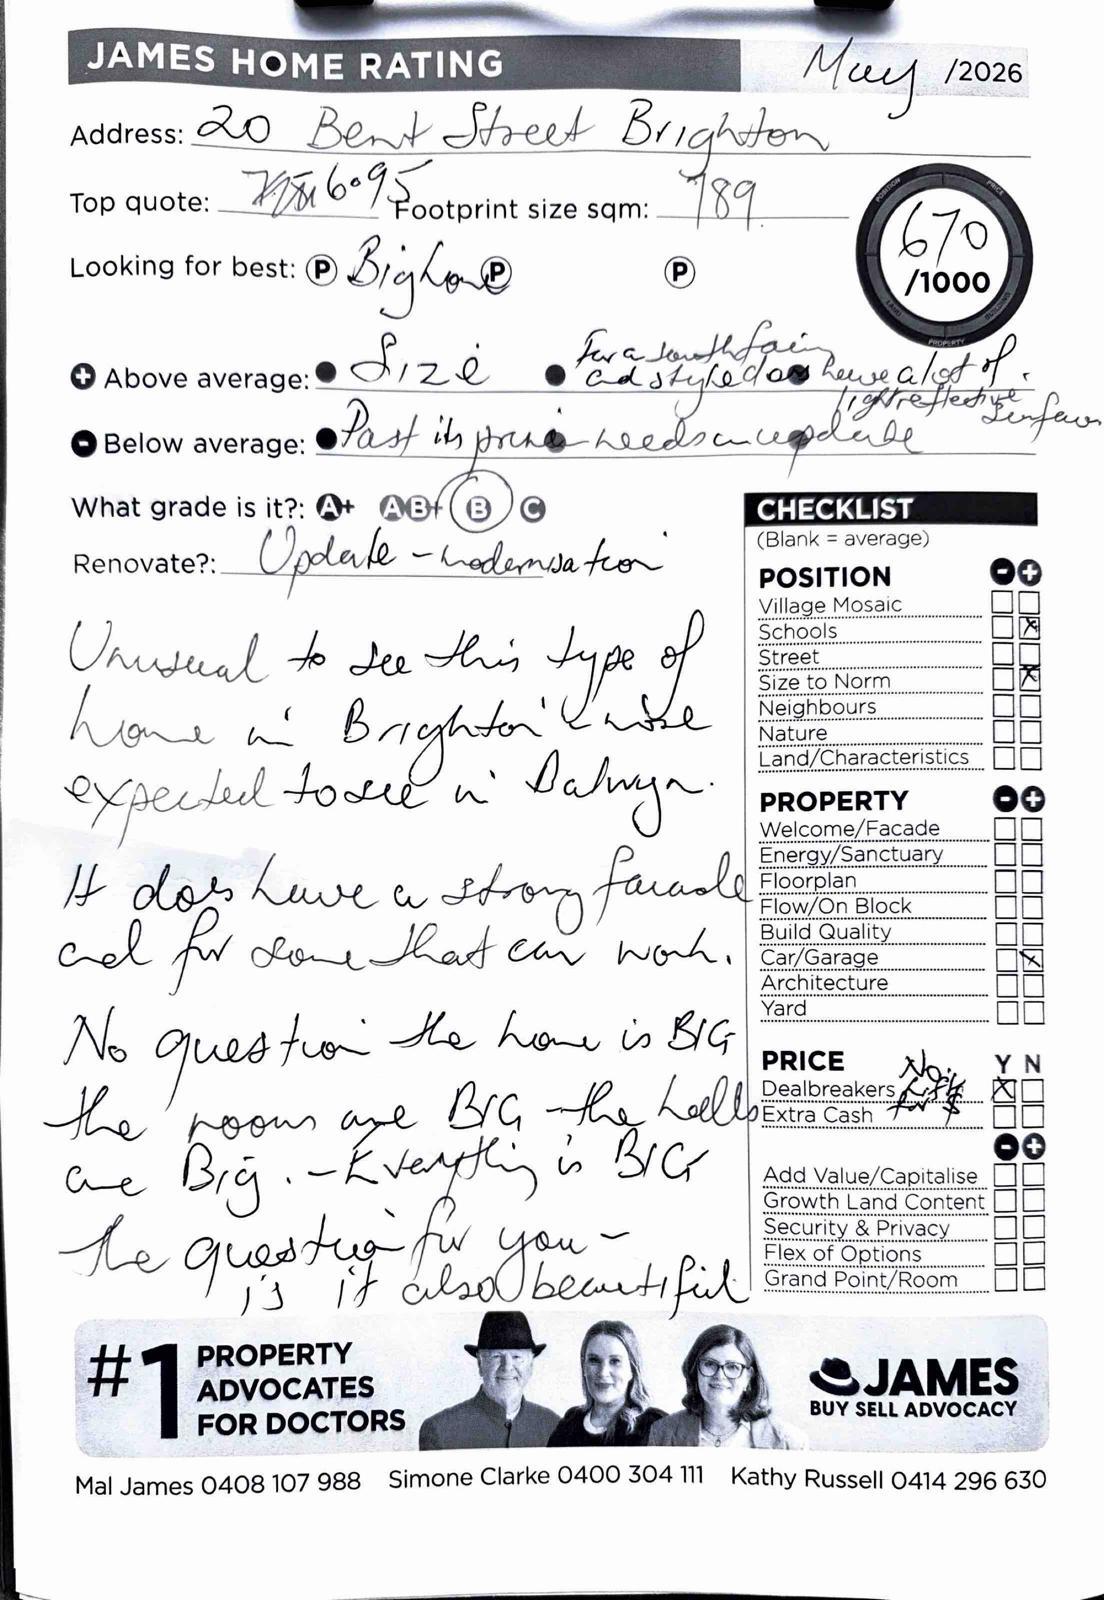 JAMES HOME RATING
May /2026
Address: 20 Bent Street Brighton
Top quote: 6.95 Footprint size sqm: 789
670
/1000
POSITION PRICE LAND BUILDING PROPERTY
Looking for best: P Big home P P
+ Above average: Size
For a south facing
and style does have a lot of
light reflective
surfaces
- Below average: Past its prime needs an update
What grade is it?: A+ A B+ B C
Renovate?: Update - modernisation
Unusual to see this type of
home in Brighton
expected to see in Balwyn.
It does have a strong facade
and for some that can work.
No question the home is BIG
the rooms are BIG - the halls
are Big. - Everything is BIG
the question for you -
is it also beautiful
CHECKLIST
(Blank = average)
POSITION - +
Village Mosaic
Schools X
Street
Size to Norm X
Neighbours
Nature
Land/Characteristics
PROPERTY - +
Welcome/Facade
Energy/Sanctuary
Floorplan
Flow/On Block
Build Quality
Car/Garage X
Architecture
Yard
PRICE Y N
Dealbreakers No Lift X
Extra Cash for $
- +
Add Value/Capitalise
Growth Land Content
Security & Privacy
Flex of Options
Grand Point/Room
#1 PROPERTY
ADVOCATES
FOR DOCTORS
JAMES
BUY SELL ADVOCACY
Mal James 0408 107 988 Simone Clarke 0400 304 111 Kathy Russell 0414 296 630